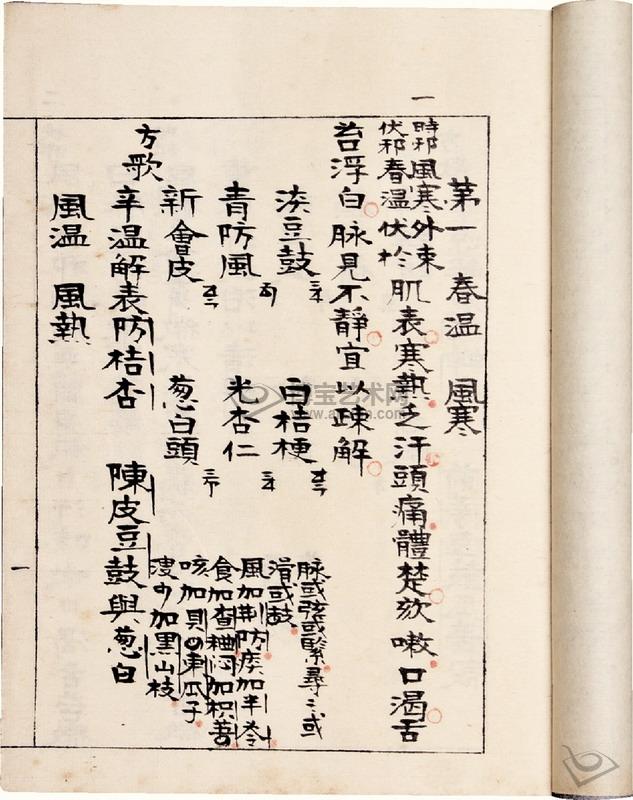 一
第一 春温 風寒
時邪風寒外束
伏邪春温伏於
肌表寒熱乏汗頭痛體楚欬嗽口渴舌
苔浮白脉見不靜宜以疎解
淡豆鼓 白桔梗
青防風 光杏仁
新會皮 葱白頭
脉或弦或緊尋之或
滑或鼓
風加荆防痰加半苓
食加查麯悶加枳善
咳加貝冬瓜子
加黑山枝
方歌
辛温解表防桔杏 陳皮豆鼓與葱白
風温 風熱
一
雅宝艺术网